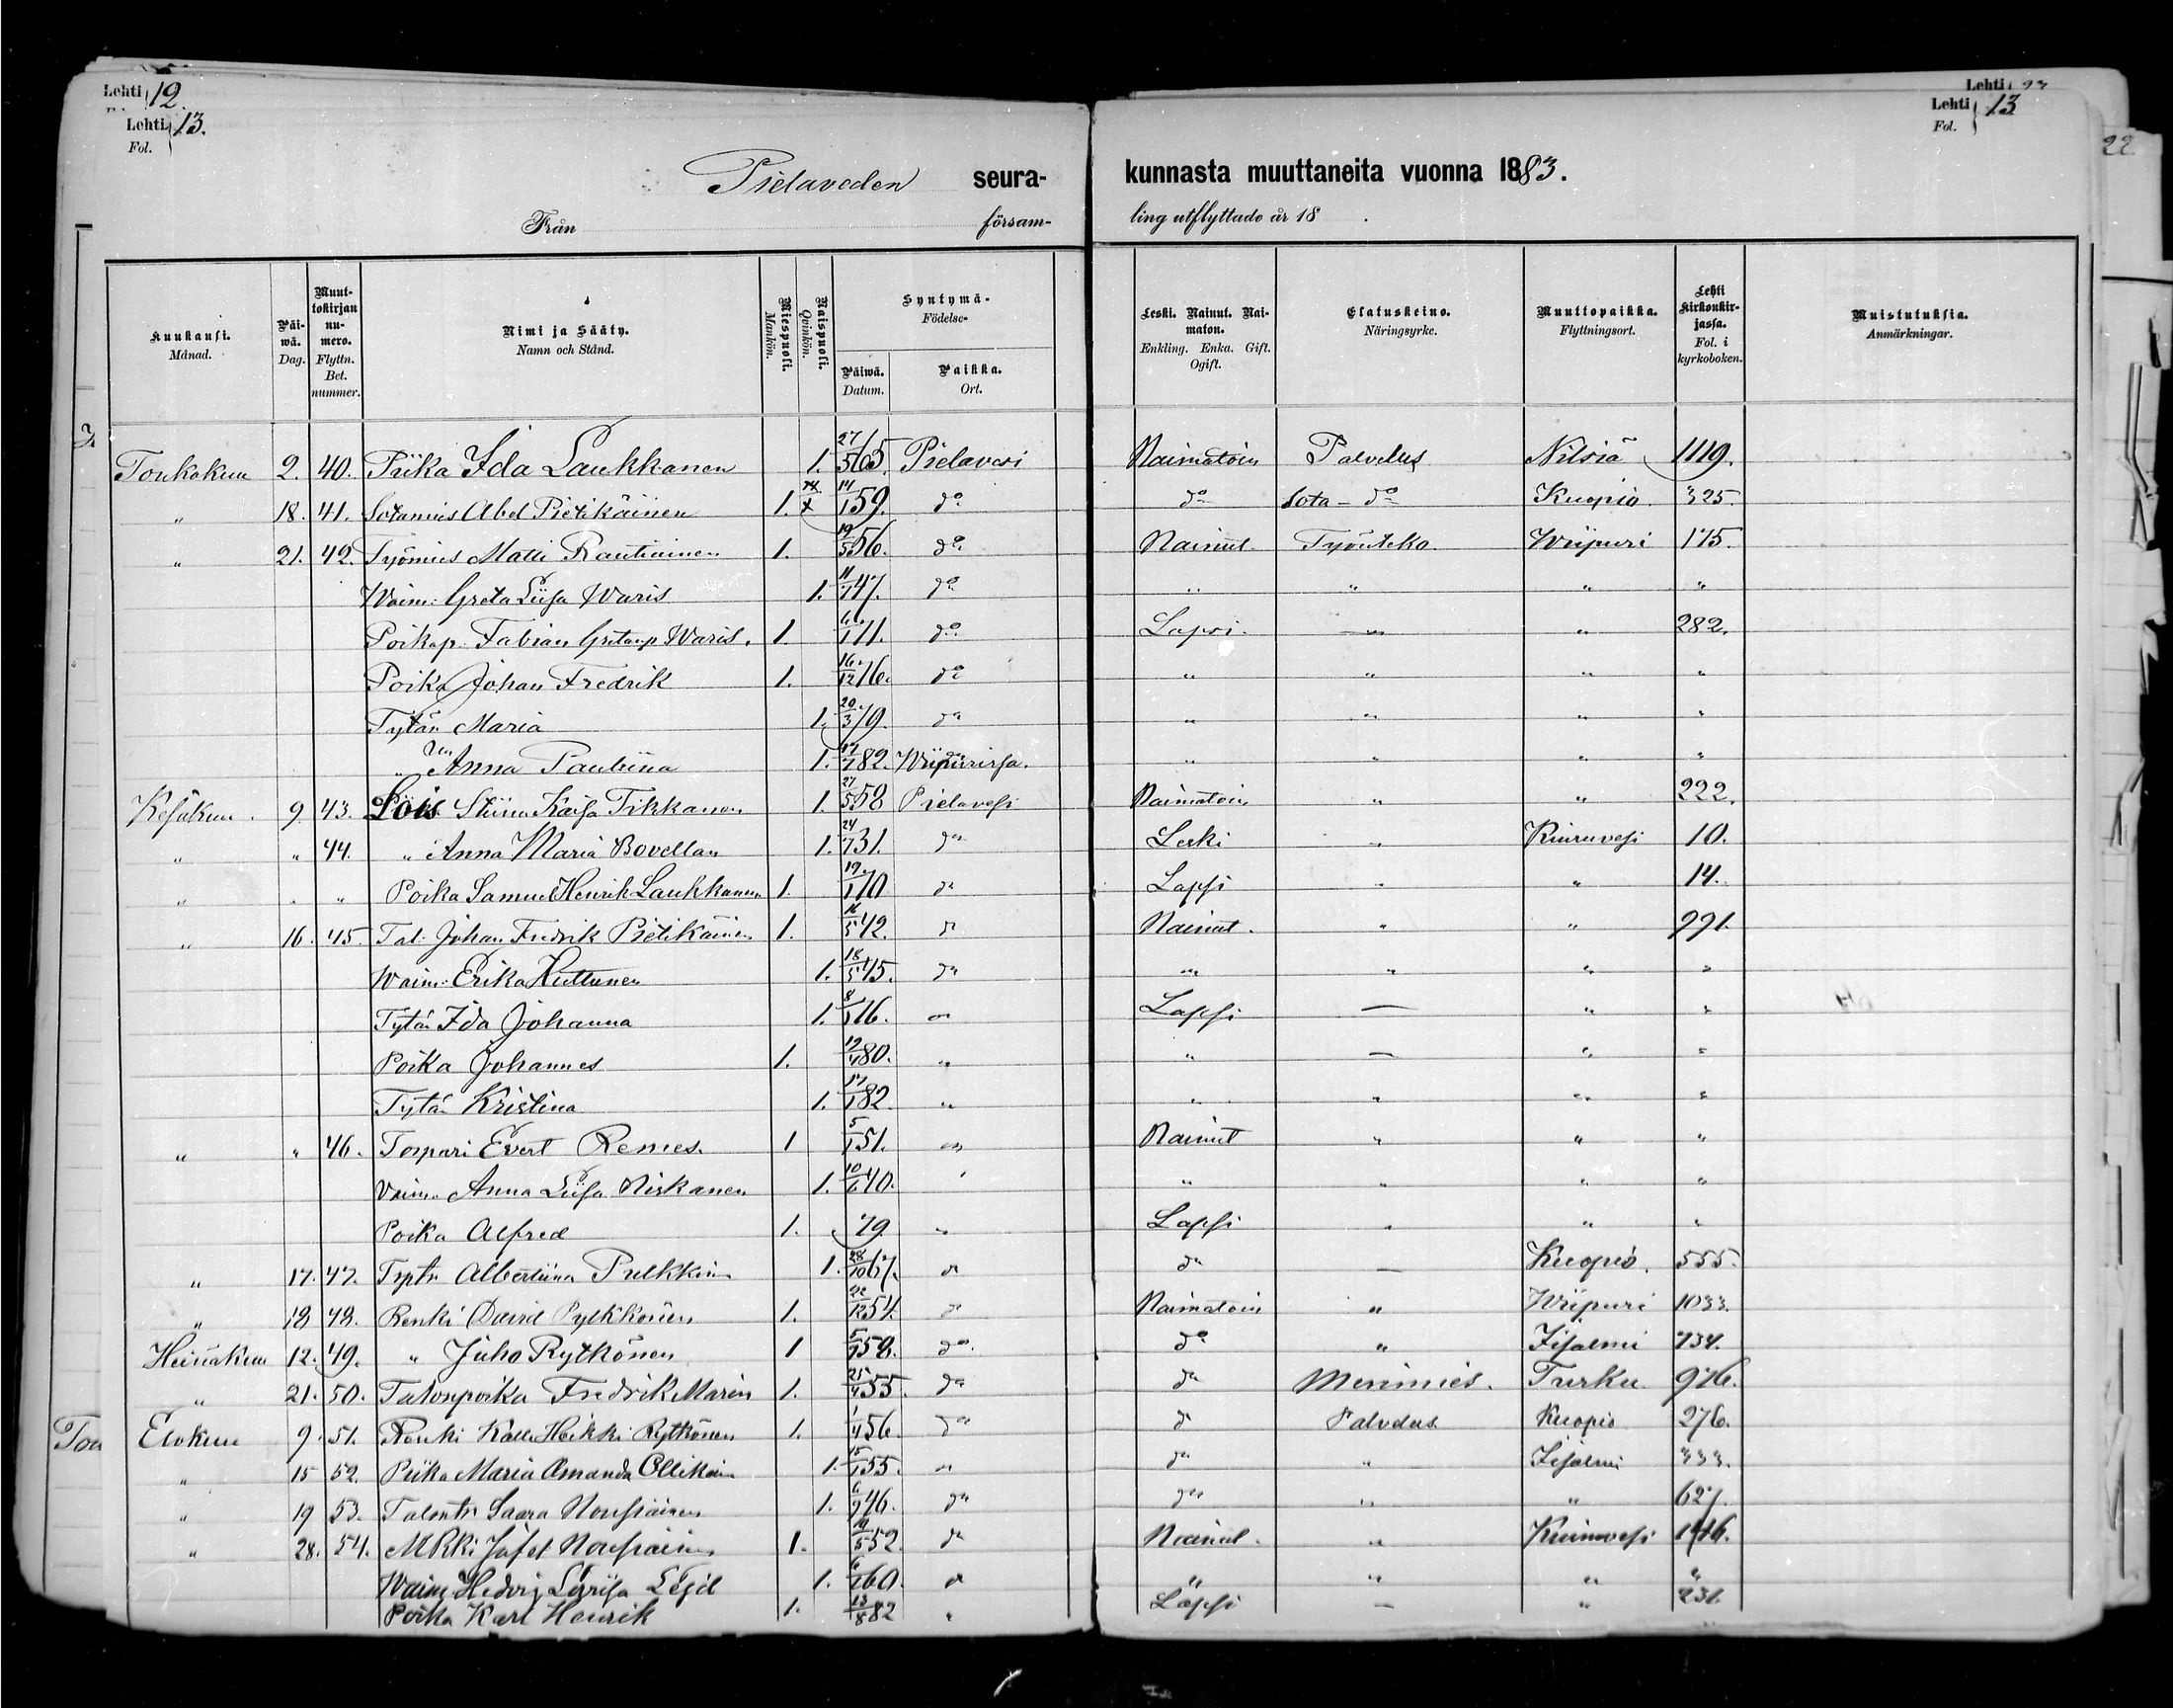 Lehti 12.
Lehti 13. Fol.
Lehti 23
Lehti 13 Fol.
22
Pielaveden seura- kunnasta muuttaneita vuonna 1883.
Från försam- ling utflyttade år 18 .
Kuukausi. Månad. Päi-wä. Dag. Muut-tokirjan nu-mero. Flyttn. Bet. nummer. Nimi ja Sääty. Namn och Stånd. Miespuoli. Mankön. Naispuoli. Qvinkön. Syntymä- Födelse- Päiwä. Datum. Paikka. Ort. Leski. Nainut. Nai-maton. Enkling. Enka. Gift. Ogift. Elatuskeino. Näringsyrke. Muuttopaikka. Flyttningsort. Lehti kirkonkir-jassa. Fol. i kyrkoboken. Muistutuksia. Anmärkningar.
Toukokuu 2. 40. Piika Ida Laukkanen 1. 27/5 65. Pielavesi Naimatoin Palvelus Nilsiä 1119.
" 18. 41. Sotamies Abel Pietikäinen 1. 14/1 59. d:o d:o Sota-d:o Kuopio. 325.
" 21. 42. Työmies Matti Rautiainen 1. 19/5 56. d:o Nainut. Työnteko. Wiipuri 175.
Waim: Greta Liisa Waris 1. 11/7 47. d:o " " " "
Poikap. Fabian Gretanp. Waris. 1. 71. d:o Lapsi. — " 282.
Poika Johan Fredrik 1. 16/12 76. d:o " " " "
Tytär Maria 1. 20/3 79. d:o " " " "
" Anna Pauliina 1. 82. Wiipurissa. " " " "
Kesäkuu. 9. 43. Lois Stiina Kaisa Tikkanen 1. 27/5 58 Pielavesi Naimatoin " " 222.
" " 44. " Anna Maria Bovellan 1. 24/7 31. d:o Leski " Kiuruvesi 10.
" " " Poika Samuel Henrik Laukkanen 1. 19/1 70 d:o Lapsi " " 14.
" 16. 45. Tal. Johan Fredrik Pietikäinen 1. 16/5 42. d:o Nainut. " " 991.
Waim: Erika Huttunen 1. 18/5 45. d:o " " " "
Tytär Ida Johanna 1. 8/1 76. " Lapsi — " "
Poika Johannes 1. 80. " " — " "
Tytär Kristina 1. 82. " " " " "
" " 46. Torpari Evert Remes. 1 5/1 51. " Nainut " " "
Vaim. Anna Liisa Niskanen 1. 10/6 40. " " " " "
Poika Alfred 1. 79. " Lapsi " " "
" 17. 47. Trptr Albertiina Pulkkin 1. 28/10 67. d:o d:o — Kuopio. 555.
" 18 48. Renki David Pylkkönen 1. 22/12 54. d:o Naimatoin " Wiipuri 1033.
Heinäkuu 12. 49. " Juho Rytkönen 1 58. d:o d:o " Iisalmi 734.
" 21. 50. Talonpoika Fredrik Marin 1. 25/4 55. d:o d:o Merimies. Turku 976.
Elokuu 9. 51. Renki Kalle Heikki Rytkönen 1. 1/4 56. d:o d:o Palvelus Kuopio 276.
" 15 52. Piika Maria Amanda Ollikain 1. 15/1 55. " d:o " Iisalmi 333.
" 19 53. Talontr Saara Nousiainen 1. 6/9 46. d:o d:o " " 627.
" 28. 54. Jafet Nousiainen 1. 19/5 52. d:o Nainut. " Kiuruvesi
Waim. Hedvig 1. 60. d:o " " " "
Poika Karl Henrik 1. 13/8 82 " Lapsi — " 231.
Tou